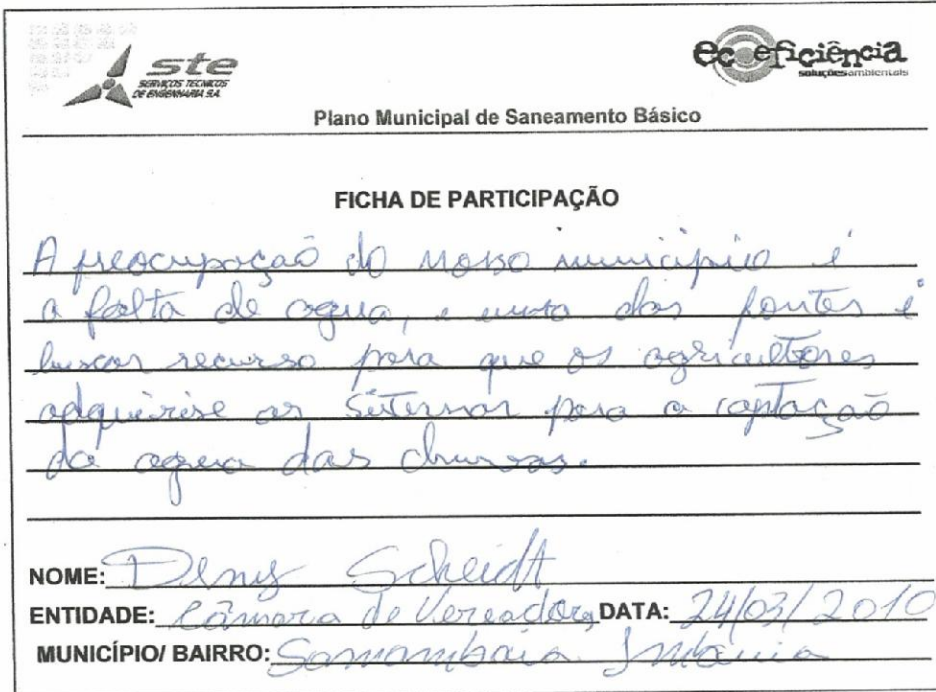 ste
SERVIÇOS TÉCNICOS
DE ENGENHARIA S.A.
ecoeficiência
soluçõesambientais
Plano Municipal de Saneamento Básico
FICHA DE PARTICIPAÇÃO
A preocupação do nosso município é
a falta de agua, e uma das fontes é
buscar recurso para que os agricultores
adquirise as sisternas para a captação
da agua das chuvas.
NOME: Deny Scheidt
ENTIDADE: Câmara de Vereadores DATA: 24/03/2010
MUNICÍPIO/ BAIRRO: Samambaia